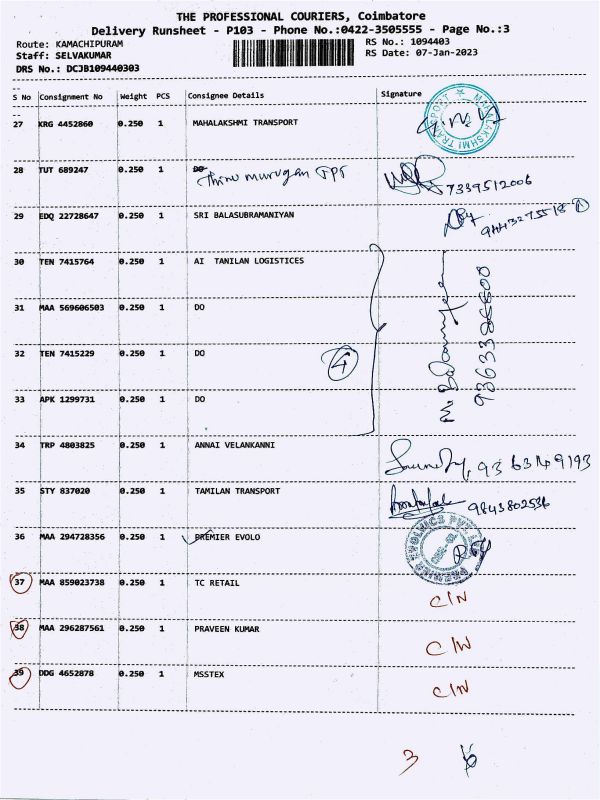 THE PROFESSIONAL COURIERS, Coimbatore
Delivery Runsheet - P103 - Phone No.:0422-3505555 - Page No.:3
Route: KAMACHIPURAM
RS No.: 1094403
Staff: SELVAKUMAR
RS Date: 07-Jan-2023
DRS No.: DCJB109440303
S No Consignment No Weight PCS Consignee Details Signature
27 KRG 4452860 0.250 1 MAHALAKSHMI TRANSPORT
MAHALAKSHMI TRANSPORT
28 TUT 689247 0.250 1 DO Thiru murugan TPT 7339512006
29 EDQ 22728647 0.250 1 SRI BALASUBRAMANIYAN
30 TEN 7415764 0.250 1 AI TANILAN LOGISTICES
31 MAA 569606503 0.250 1 DO
32 TEN 7415229 0.250 1 DO
4
33 APK 1299731 0.250 1 DO
34 TRP 4803825 0.250 1 ANNAI VELANKANNI
35 STY 837020 0.250 1 TAMILAN TRANSPORT 9843802536
36 MAA 294728356 0.250 1 PREMIER EVOLO
37 MAA 859023738 0.250 1 TC RETAIL C/N
38 MAA 296287561 0.250 1 PRAVEEN KUMAR C/N
39 DDG 4652878 0.250 1 MSSTEX C/N
3